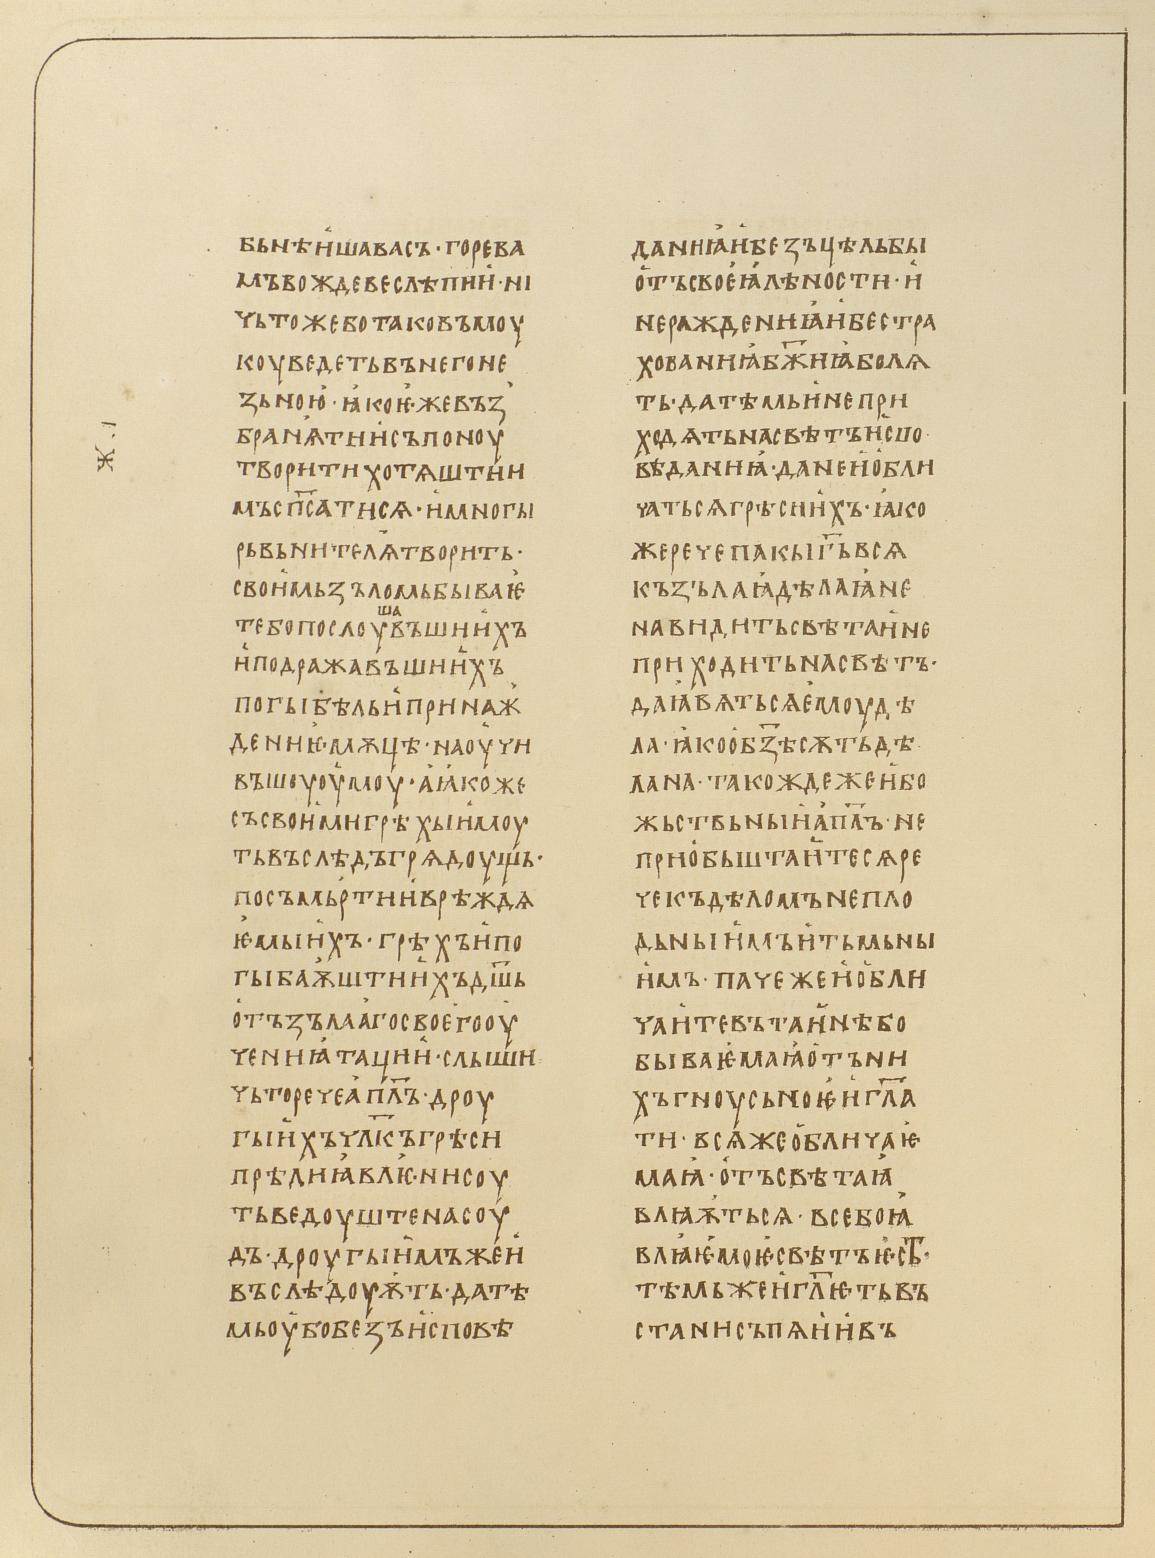 Ж҃. І
БЬНѢИШАВАСЪ · ГОРЕВА
МЪВОЖДЕВЕСЛѢПИИ · НІ
ЧЬТОЖЕБОТАКОВЪМОУ
КОУВЕДЕТЬВЪНЕГОНЕ
ЗЬНОЮ · ꙖКОѤЖЕВЪЗ
БРАНѦТИИСЪПОНОУ
ТВОРИТИХОТѦШТИИ
МЪСП҃САТИСѦ · ИМНОГЫ
РЬВЬНИТЕЛѦТВОРИТЬ ·
СВОИМЬЗЪЛОМЬБЫВАѤ
ТЕБОПОСЛОУШАВЪШИИХЪ
ИПОДРАЖАВЪШИИХЪ
ПОГЫБѢЛЬИПРИНАЖ
ДЕНИѤ · МѪЦѢ · НАОУЧИ
ВЪШОУОУМОУ · АꙖКОЖЕ
СЪСВОИМИГРѢХЫИМОУ
ТЬВЪСЛѢДЪГРѦДОУШЬ ·
ПОСЪМЬРТИИВРѢЖДѦ
ѤМЫИХЪ · ГРѢХЪИПО
ГЫБАѪШТИИХЪД҃ШЬ
ОТЪЗЪЛААГОСВОЕГООУ
ЧЕНИꙖТАЦИИ · СЛЫШИ
ЧЬТОРЕЧЕАП҃ЛЪ · ДРОУ
ГЫИХЪЧЛ҃КЪГРѢСИ
ПРѢДИꙖВЛѤНИСОУ
ТЬВЕДОУШТЕНАСОУ
ДЪ · ДРОУГЫИМЪЖЕИ
ВЪСЛѢДОУѬТЬ · ДАТѢ
МЬОУБОБЕЗЪИСПОВѢ
ДАНИꙖИБЕЗЪЦѢЛЬБЫ
ОТЪСВОЕѨЛѢНОСТИ · И
НЕРАЖДЕНИꙖИБЕСТРА
ХОВАНИꙖБ҃ЖИꙖБОЛѦ
ТЬ · ДАТѢМЬИНЕПРИ
ХОДѦТЬНАСВѢТЪИСПО
ВѢДАНИꙖ · ДАНЕИОБЛИ
ЧАТЬСѦГРѢСИИХЪ · ꙖКО
ЖЕРЕЧЕПАКЫГ҃ЬВСѦ
КЪЗЪЛАꙖДѢЛАꙖНЕ
НАВИДИТЬСВѢТАИНЕ
ПРИХОДИТЬНАСВѢТЪ ·
ДАꙖВѦТЬСѦЕМОУДѢ
ЛА · ꙖКООБ҃ЗѢСѪТЬДѢ
ЛАНА · ТАКОЖДЕЖЕИБО
ЖЬСТВЬНЫИАП҃ЛЪ · НЕ
ПРИОБЬШТАИТЕСѦРЕ
ЧЕКЪДѢЛОМЪНЕПЛО
ДЬНЫИМЪИТЬМЬНЫ
ИМЪ · ПАЧЕЖЕИОБЛИ
ЧАИТЕВЪТАИНѢБО
БЫВАѤМАꙖОТЪНИ
ХЪГНОУСЬНОѤИГ҃ЛА
ТИ · ВСѦЖЕОБЛИЧАѤ
МАꙖ · ОТЪСВѢТАꙖ
ВЛꙖѬТЬСѦ · ВСЕБОꙖ
ВЛꙖѤМОѤСВѢТЪѤСТЬ ·
ТѢМЬЖЕИГ҃ЛѤТЬВЪ
СТАНИСЪПѦИИВЪ